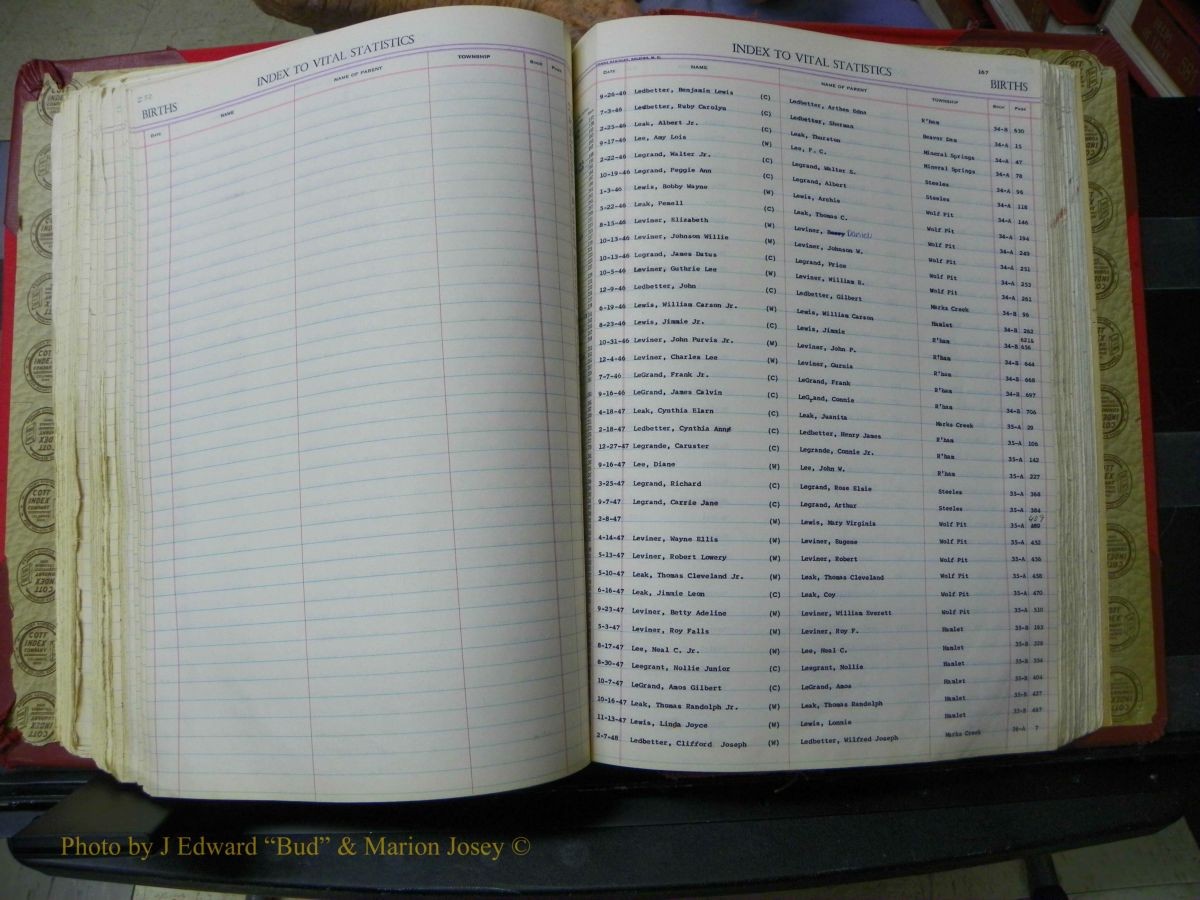 INDEX TO VITAL STATISTICS
BIRTHS
DATE NAME NAME OF PARENT TOWNSHIP BOOK PAGE
INDEX TO VITAL STATISTICS 167
BIRTHS
DATE NAME NAME OF PARENT TOWNSHIP BOOK PAGE
9-26-46 Ledbetter, Benjamin Lewis (C) Ledbetter, Arthea Edna R'ham 34-B 630
7-3-46 Ledbetter, Ruby Carolyn (C) Ledbetter, Sherman Beaver Dam 34-A 15
2-25-46 Leak, Albert Jr. (C) Leak, Thurston Mineral Springs 34-A 47
9-17-46 Lee, Amy Lois (W) Lee, F. C. Mineral Springs 34-A 78
2-22-46 Legrand, Walter Jr. (C) Legrand, Walter S. Steeles 34-A 96
10-19-46 Legrand, Peggie Ann (C) Legrand, Albert Steeles 34-A 118
1-3-46 Lewis, Bobby Wayne (W) Lewis, Archie Wolf Pit 34-A 146
5-22-46 Leak, Pemell (C) Leak, Thomas C. Wolf Pit 34-A 194
8-15-46 Leviner, Elizabeth (W) Leviner, Daniel Wolf Pit 34-A 249
10-13-46 Leviner, Johnson Willie (W) Leviner, Johnson W. Wolf Pit 34-A 251
10-13-46 Legrand, James Datus (C) Legrand, Price Wolf Pit 34-A 253
10-5-46 Leviner, Guthrie Lee (W) Leviner, William R. Wolf Pit 34-A 261
12-9-46 Ledbetter, John (C) Ledbetter, Gilbert Marks Creek 34-B 96
6-19-46 Lewis, William Carson Jr. (W) Lewis, William Carson Hamlet 34-B 262
8-23-46 Lewis, Jimmie Jr. (C) Lewis, Jimmie R'ham 34-B 621& 656
10-31-46 Leviner, John Purvis Jr. (W) Leviner, John P. R'ham 34-B 644
12-4-46 Leviner, Charles Lee (W) Leviner, Gurnia R'ham 34-B 668
7-7-46 LeGrand, Frank Jr. (C) LeGrand, Frank R'ham 34-B 697
9-16-46 LeGrand, James Calvin (C) LeGrand, Connie R'ham 34-B 706
4-18-47 Leak, Cynthia Elarn (C) Leak, Juanita Marks Creek 35-A 29
2-18-47 Ledbetter, Cynthia Ann (C) Ledbetter, Henry James R'ham 35-A 106
12-27-47 Legrande, Caruster (C) Legrande, Connie Jr. R'ham 35-A 142
9-16-47 Lee, Diane (W) Lee, John W. R'ham 35-A 227
3-25-47 Legrand, Richard (C) Legrand, Rose Elsie Steeles 35-A 368
9-7-47 Legrand, Carrie Jane (C) Legrand, Arthur Steeles 35-A 384
2-8-47 (W) Lewis, Mary Virginia Wolf Pit 35-A 409
4-14-47 Leviner, Wayne Ellis (W) Leviner, Eugene Wolf Pit 35-A 432
5-13-47 Leviner, Robert Lowery (W) Leviner, Robert Wolf Pit 35-A 436
5-10-47 Leak, Thomas Cleveland Jr. (W) Leak, Thomas Cleveland Wolf Pit 35-A 458
6-16-47 Leak, Jimmie Leon (C) Leak, Coy Wolf Pit 35-A 470
9-23-47 Leviner, Betty Adeline (W) Leviner, William Everett Wolf Pit 35-A 510
5-3-47 Leviner, Roy Falls (W) Leviner, Roy F. Hamlet 35-B 163
8-17-47 Lee, Neal C. Jr. (W) Lee, Neal C. Hamlet 35-B 328
8-30-47 Leegrant, Nollie Junior (C) Leegrant, Nollie Hamlet 35-B 334
10-7-47 LeGrand, Amos Gilbert (C) LeGrand, Amos Hamlet 35-B 404
10-16-47 Leak, Thomas Randolph Jr. (W) Leak, Thomas Randolph Hamlet 35-B 427
11-13-47 Lewis, Linda Joyce (W) Lewis, Lonnie Hamlet 35-B 497
2-7-48 Ledbetter, Clifford Joseph (W) Ledbetter, Wilfred Joseph Marks Creek 36-A 7
COTT INDEX COMPANY
Photo by J Edward “Bud” & Marion Josey ©